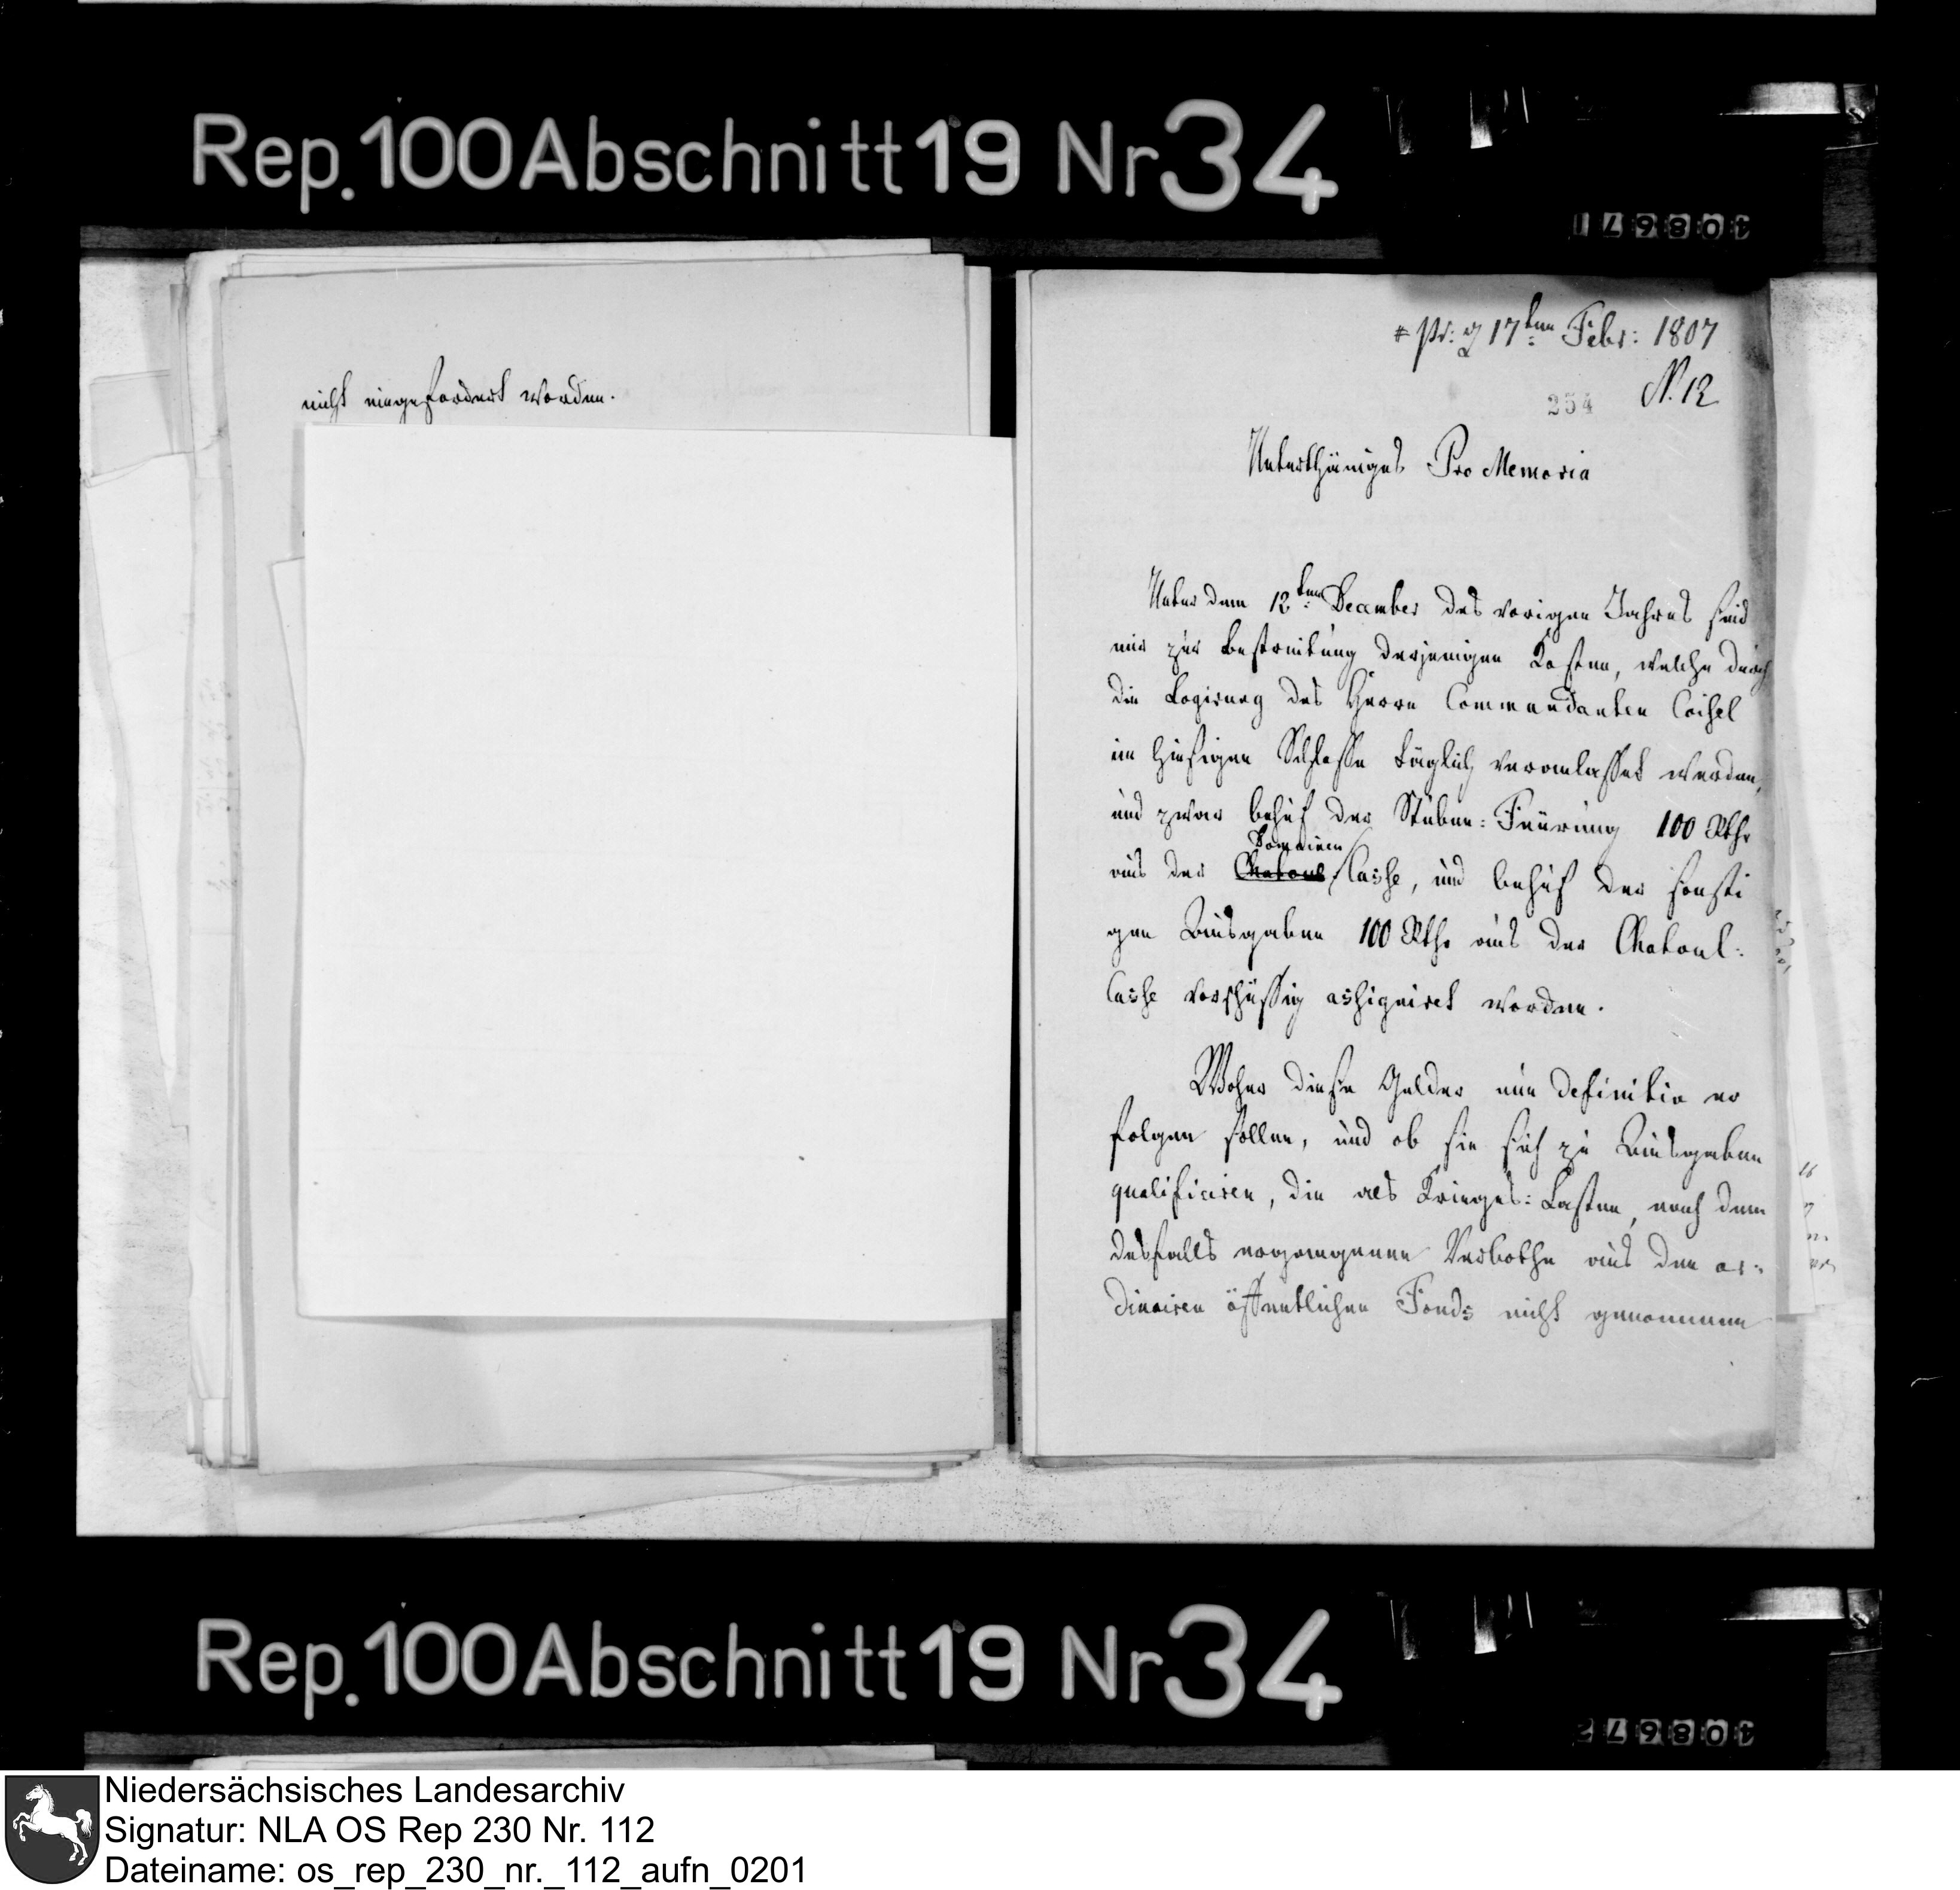 Rep. 100 Abschnitt 19 Nr 34
408671
nicht eingefordert worden.
pr: d 17ten Febr: 1807
N. 12
254
Unterthäniges Pro Memoria
Unter dem 12ten December des vorigen Jahres sind
mir zur Bestreitung derjenigen Kosten, welche durch
die Logirung des Herrn Commendanten
im hiesigen Schlosse täglich veranlasset werden,
und zwar behuf der Stuben-Feürung 100 Rthr
Domainen
aus der Chatoul Casse, und behuf der sonsti
gen Ausgaben 100 Rthr aus der Chatoul-
Casse vorschüssig assigniret worden.
Woher diese Gelder nun definitiv er
folgen sollen, und ob sie sich zu Ausgaben
qualificiren, die als Krieges-Lasten, nach dem
desfalls ergangenen Verbothe aus den or-
dinairen öffentlichen Fonds nicht genommen
Rep. 100 Abschnitt 19 Nr 34
408672
Niedersächsisches Landesarchiv
Signatur: NLA OS Rep 230 Nr. 112
Dateiname: os_rep_230_nr._112_aufn_0201